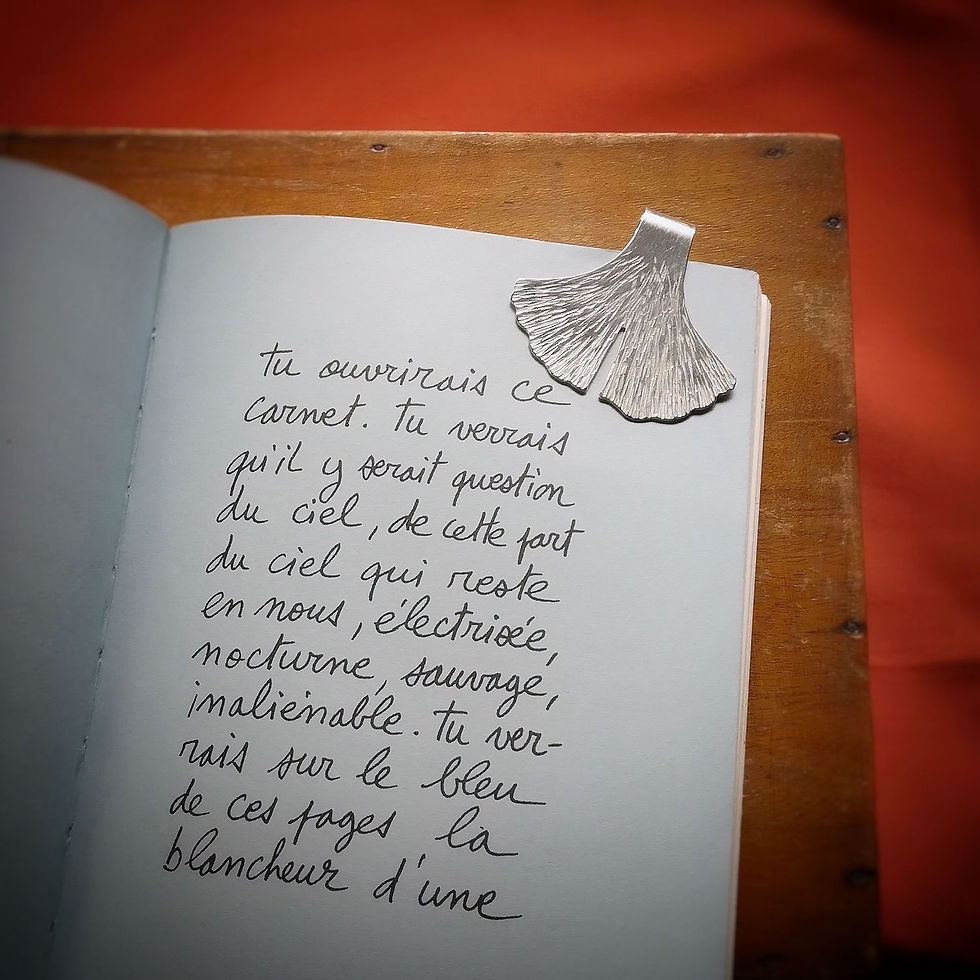 tu ouvrirais ce
carnet. tu verrais
qu'il y serait question
du ciel, de cette part
du ciel qui reste
en nous, électrisée,
nocturne, sauvage,
inaliénable. tu ver-
rais sur le bleu
de ces pages la
blancheur d'une